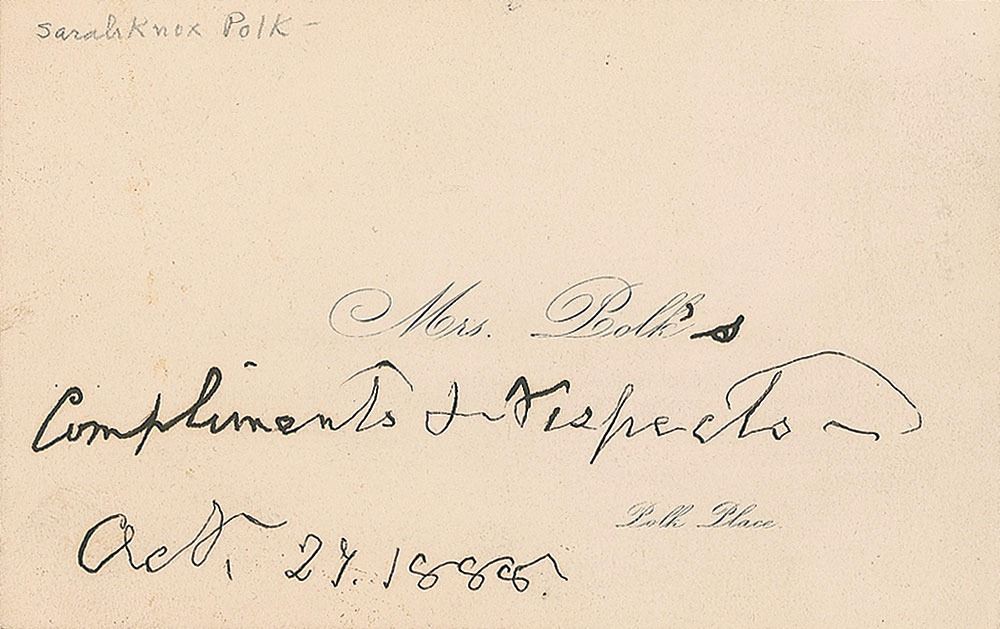 Sarah Knox Polk –
Mrs. Polk's
Compliments & respects –
Polk Place.
Oct. 27. 1888.